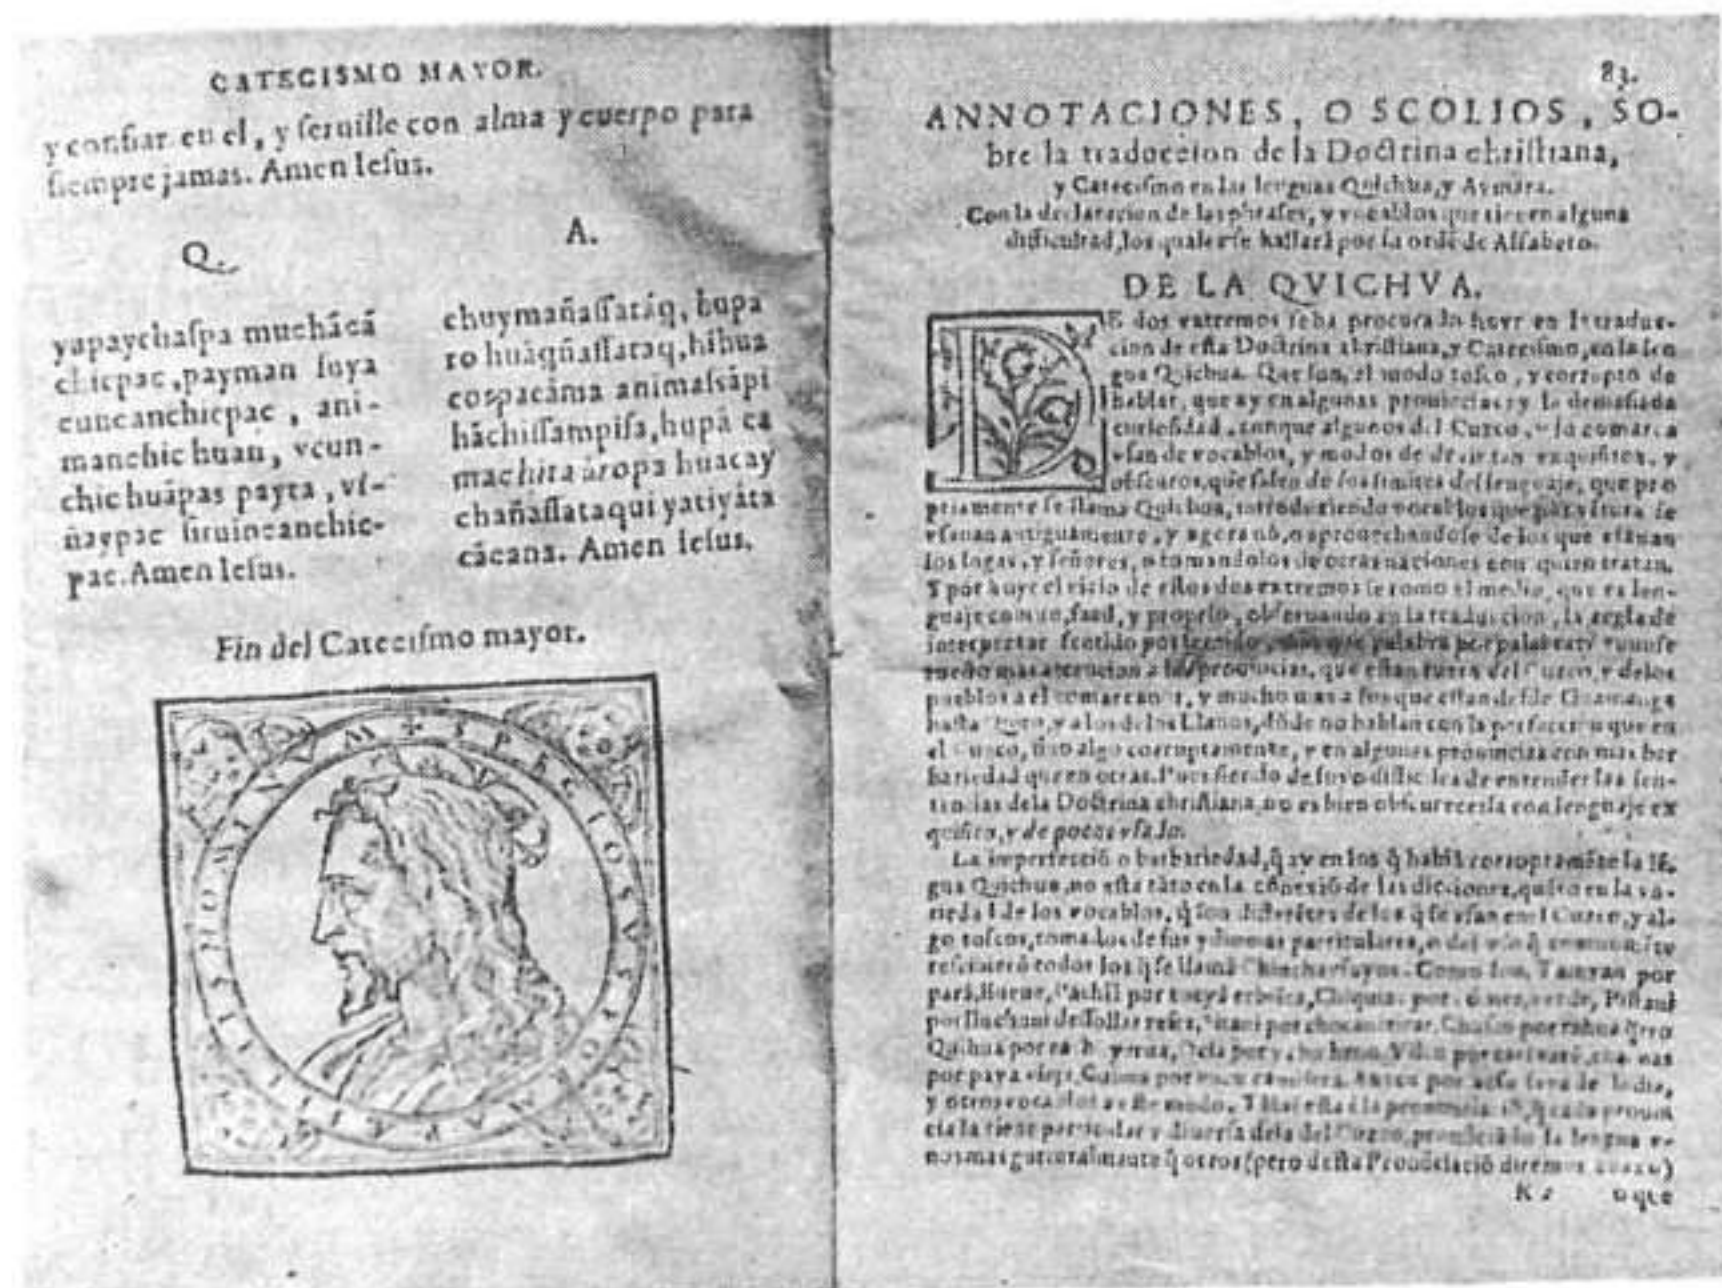 CATECISMO MAYOR.
y confiar en el, y seruille con alma y cuerpo para
siempre jamas. Amen Iesus.
Q.
yupaychaspa muchācā
chicpac, payman suya
cuncanchicpac, ani-
manchic huan, vcun-
chic huāpas payta, vi-
ñaypac siruincanchic-
pac. Amen Iesus.
A.
chuymañassatáq, hupa
ro huáqñassataq, hihua
cospacáma animassāpi
hāchissampisa, hupā ca
machita àropa huacay
chañassataqui yatiyáta
cácana. Amen Iesus.
Fin del Catecismo mayor.
✢ SPECIOSVS FORMA PRÆ FILIIS HOMINVM
83.
ANNOTACIONES, O SCOLIOS, SO-
bre la traduccion de la Doctrina christiana,
y Catecismo en las lenguas Quichua, y Aymara.
Con la declaracion de las phrases, y vocablos que tienen alguna
difficultad, los quales se hallarā por la ordē de Alfabeto.
DE LA QVICHVA.
DE dos extremos se ha procurado huyr en la traduc-
cion de esta Doctrina christiana, y Catecismo, en la len
gua Quichua. Que son, el modo tosco, y corrupto de
hablar, que ay en algunas prouincias: y la demasiada
curiosidad, conque algunos del Cuzco, y su comarca
vsan de vocablos, y modos de dezir tan exquisitos, y
obscuros, que salen de los limites del lenguaje, que pro
priamente se llama Quichua, introduziendo vocablos que por vētura se
vsauan antiguamente, y agora nò, o aprouechandose de los que vsauan
los Ingas, y señores, o tomandolos de otras naciones con quien tratan.
Y por huyr el vicio de estos dos extremos se tomo el medio, que es len-
guaje comun, facil, y proprio, obseruando en la traduccion, la regla de
interpretar sentido por sentido, palabra por palabra:
mas atencion a las prouincias, que estan fuera del Cuzco, y de los
pueblos a el comarcanos, y mucho mas a los que estan desde Guamanga
hasta Quito, y a los de los Llanos, dōde no hablan con la perfection que en
el Cuzco, sino algo corruptamente, y en algunas prouincias con mas bar
bariedad que en otras. Pues siendo de suyo difficiles de entender las sen-
tencias dela Doctrina christiana, no es bien obscurecerla con lenguaje ex
quisito, y de pocos vsado.
La imperfectiō o barbariedad, q̄ ay en los q̄ hablā corruptamēte la lē-
gua Quichua, no esta tāto en la cōnexiō de las dicciones, quāto en la va-
riedad de los vocablos, q̄ son diferētes de los q̄ se vsan en el Cuzco, y al-
go toscos, tomados de sus ydiomas particulares, o del vso q̄
todos los q̄ se llamā Chinchaysuyos. Como son, Tamyan por
parā, llueue,
por lluchuni dessollar reses,
Quihua por
por paya vieja,
y otros vocablos a este modo. Y
cia la tiene particular y diuersa dela del Cuzco, la lengua v-
nos mas guturalmente q̄ otros (pero desta Pronūciaciō diremos
K 2 o que